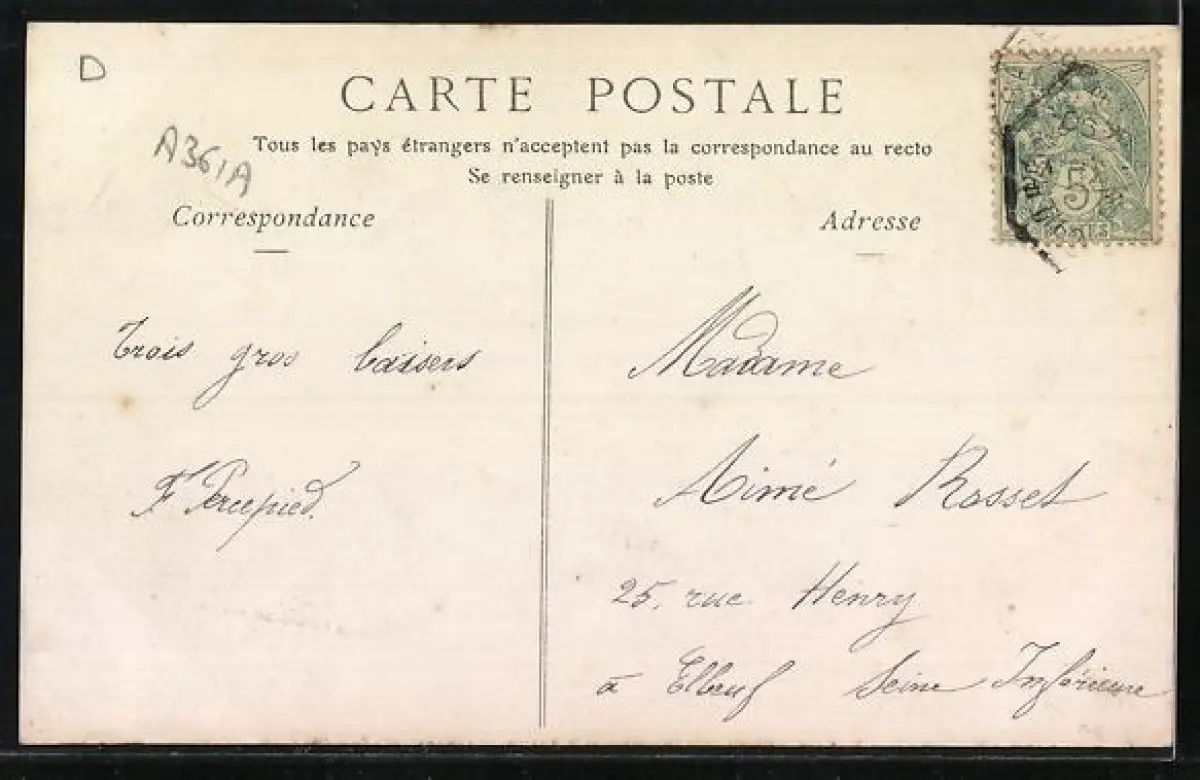 D
CARTE POSTALE
A361A
Tous les pays étrangers n'acceptent pas la correspondance au recto
Se renseigner à la poste
Correspondance
Adresse
5
Trois gros baisers
F Percepied.
Madame
Aimé Rosset
25, rue Henry
à Elbeuf Seine Inférieure